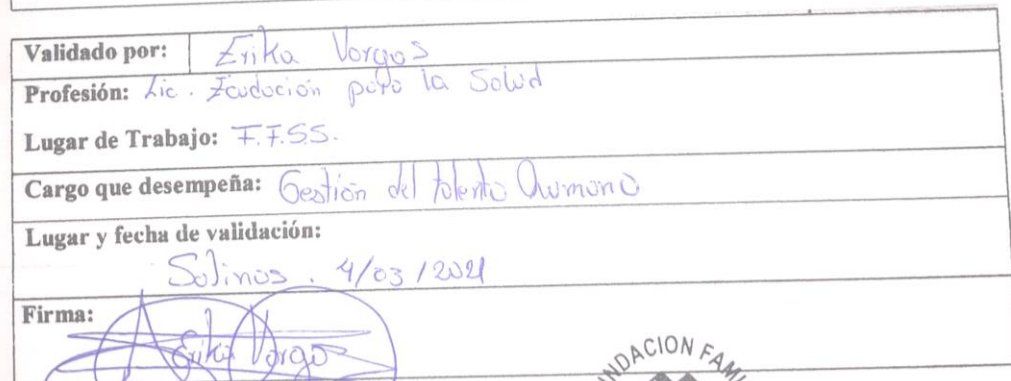 Validado por: Erika Vargas
Profesión: Lic. Educación para la Salud
Lugar de Trabajo: F.F.S.S.
Cargo que desempeña: Gestión del talento Humano
Lugar y fecha de validación:
Salinas. 4/03/2021
Firma:
Erika Vargas
NDACION FAMI